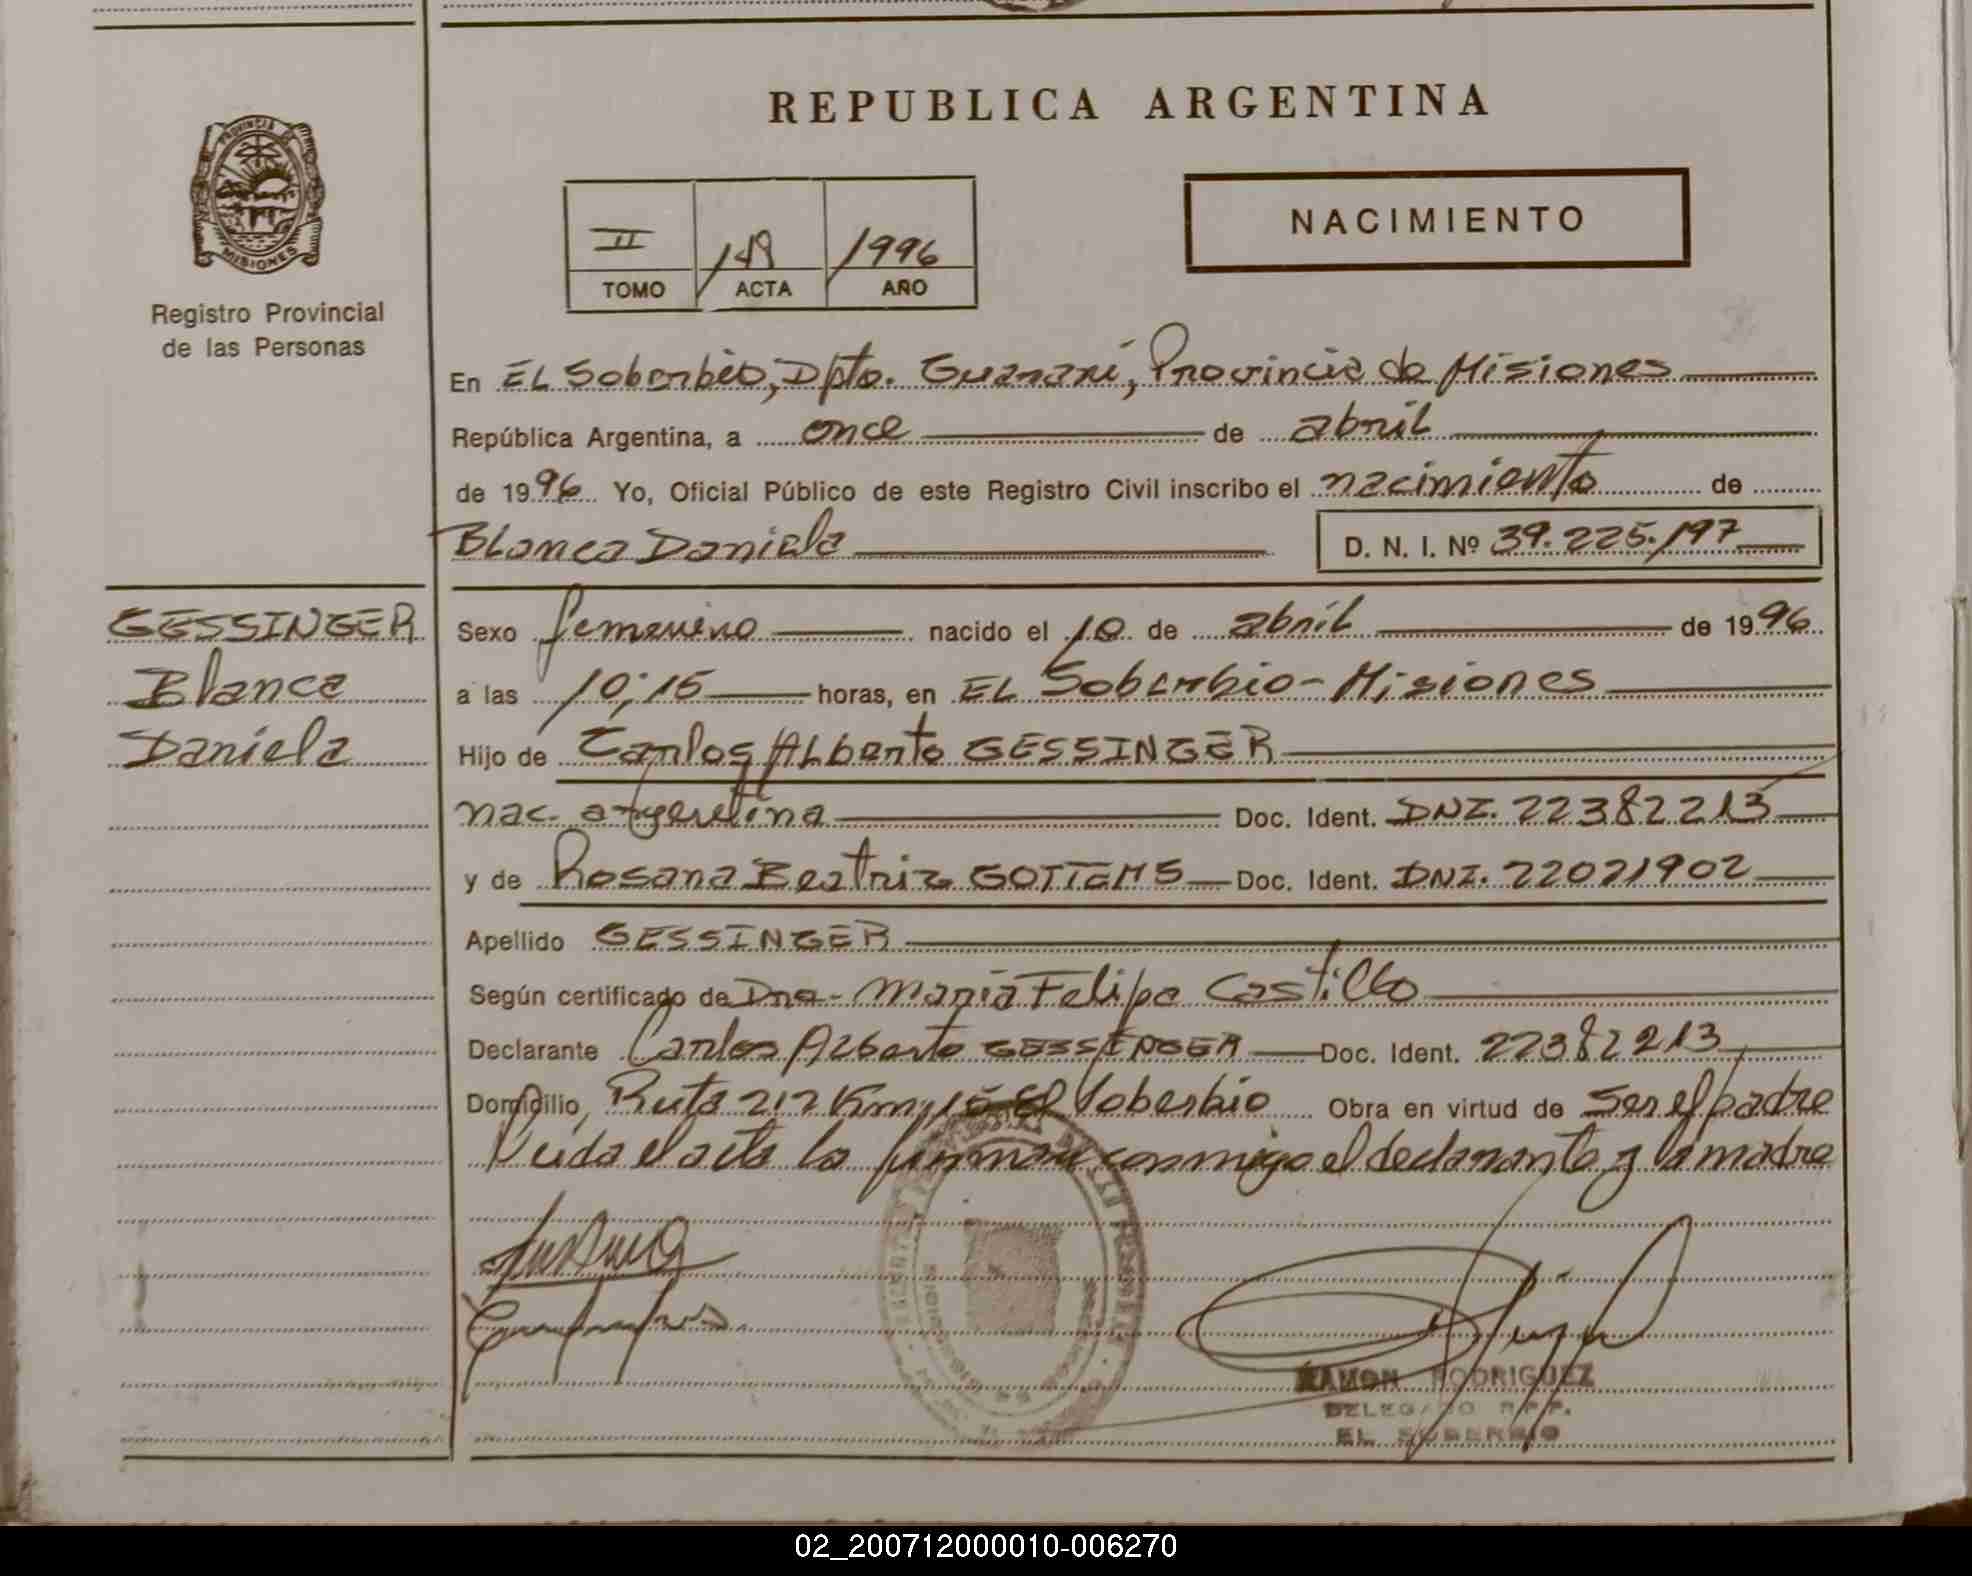 REPUBLICA ARGENTINA
PROVINCIA DE
MISIONES
Registro Provincial
de las Personas
NACIMIENTO
II 1996
TOMO ACTA AÑO
En EL Soberbio, Dpto. Guaraní, Provincia de Misiones
República Argentina, a once de abril
de 1996 Yo, Oficial Público de este Registro Civil inscribo el nacimiento de
Blanca Daniela D. N. I. Nº 39.225.197
GESSINGER
Blanca
Daniela
Sexo femenino nacido el 10 de abril de 1996
a las 10:15 horas, en EL Soberbio - Misiones
Hijo de Carlos Alberto GESSINGER
nac. argentina Doc. Ident. DNI. 22382213
y de Rosana Beatriz GOTTEMS Doc. Ident. DNI. 22021902
Apellido GESSINGER
Según certificado de Dna. María Felipa Castillo
Declarante Carlos Alberto GESSINGER Doc. Ident. 22382213
Domicilio, Ruta 212 Km, 15 El Soberbio Obra en virtud de Ser el padre
Leída el acta la firman conmigo el declarante y la madre
RAMON RODRIGUEZ
DELEGADO R.P.P.
EL SOBERBIO
02_200712000010-006270